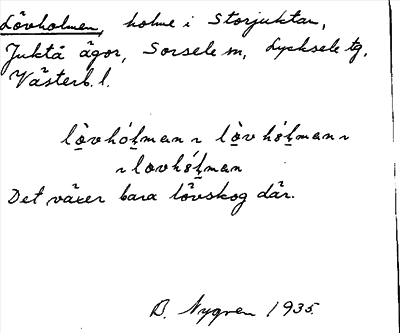 Lövholmen, holme i Storjuktan,
Juktå ägor, Sorsele sn, Lycksele tg,
Västerb. l.
lo̤vhólman ~ lo̤vhólman ~
~ lovhólman
Det växer bara lövskog där.
B. Nygren 1935.